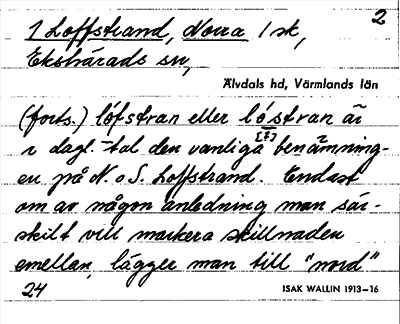 2
1 Loffstrand, Norra 1 sk,
Ekshärads sn,
Älvdals hd, Värmlands län
(forts.) löfstran eller lòstran är
[ƒ]
i dagl. tal den vanliga benämning-
en på N. o S. Loffstrand. Endast
om av någon anledning man sär-
skilt vill markera skillnaden
emellan, lägger man till "nord"
24
ISAK WALLIN 1913–16